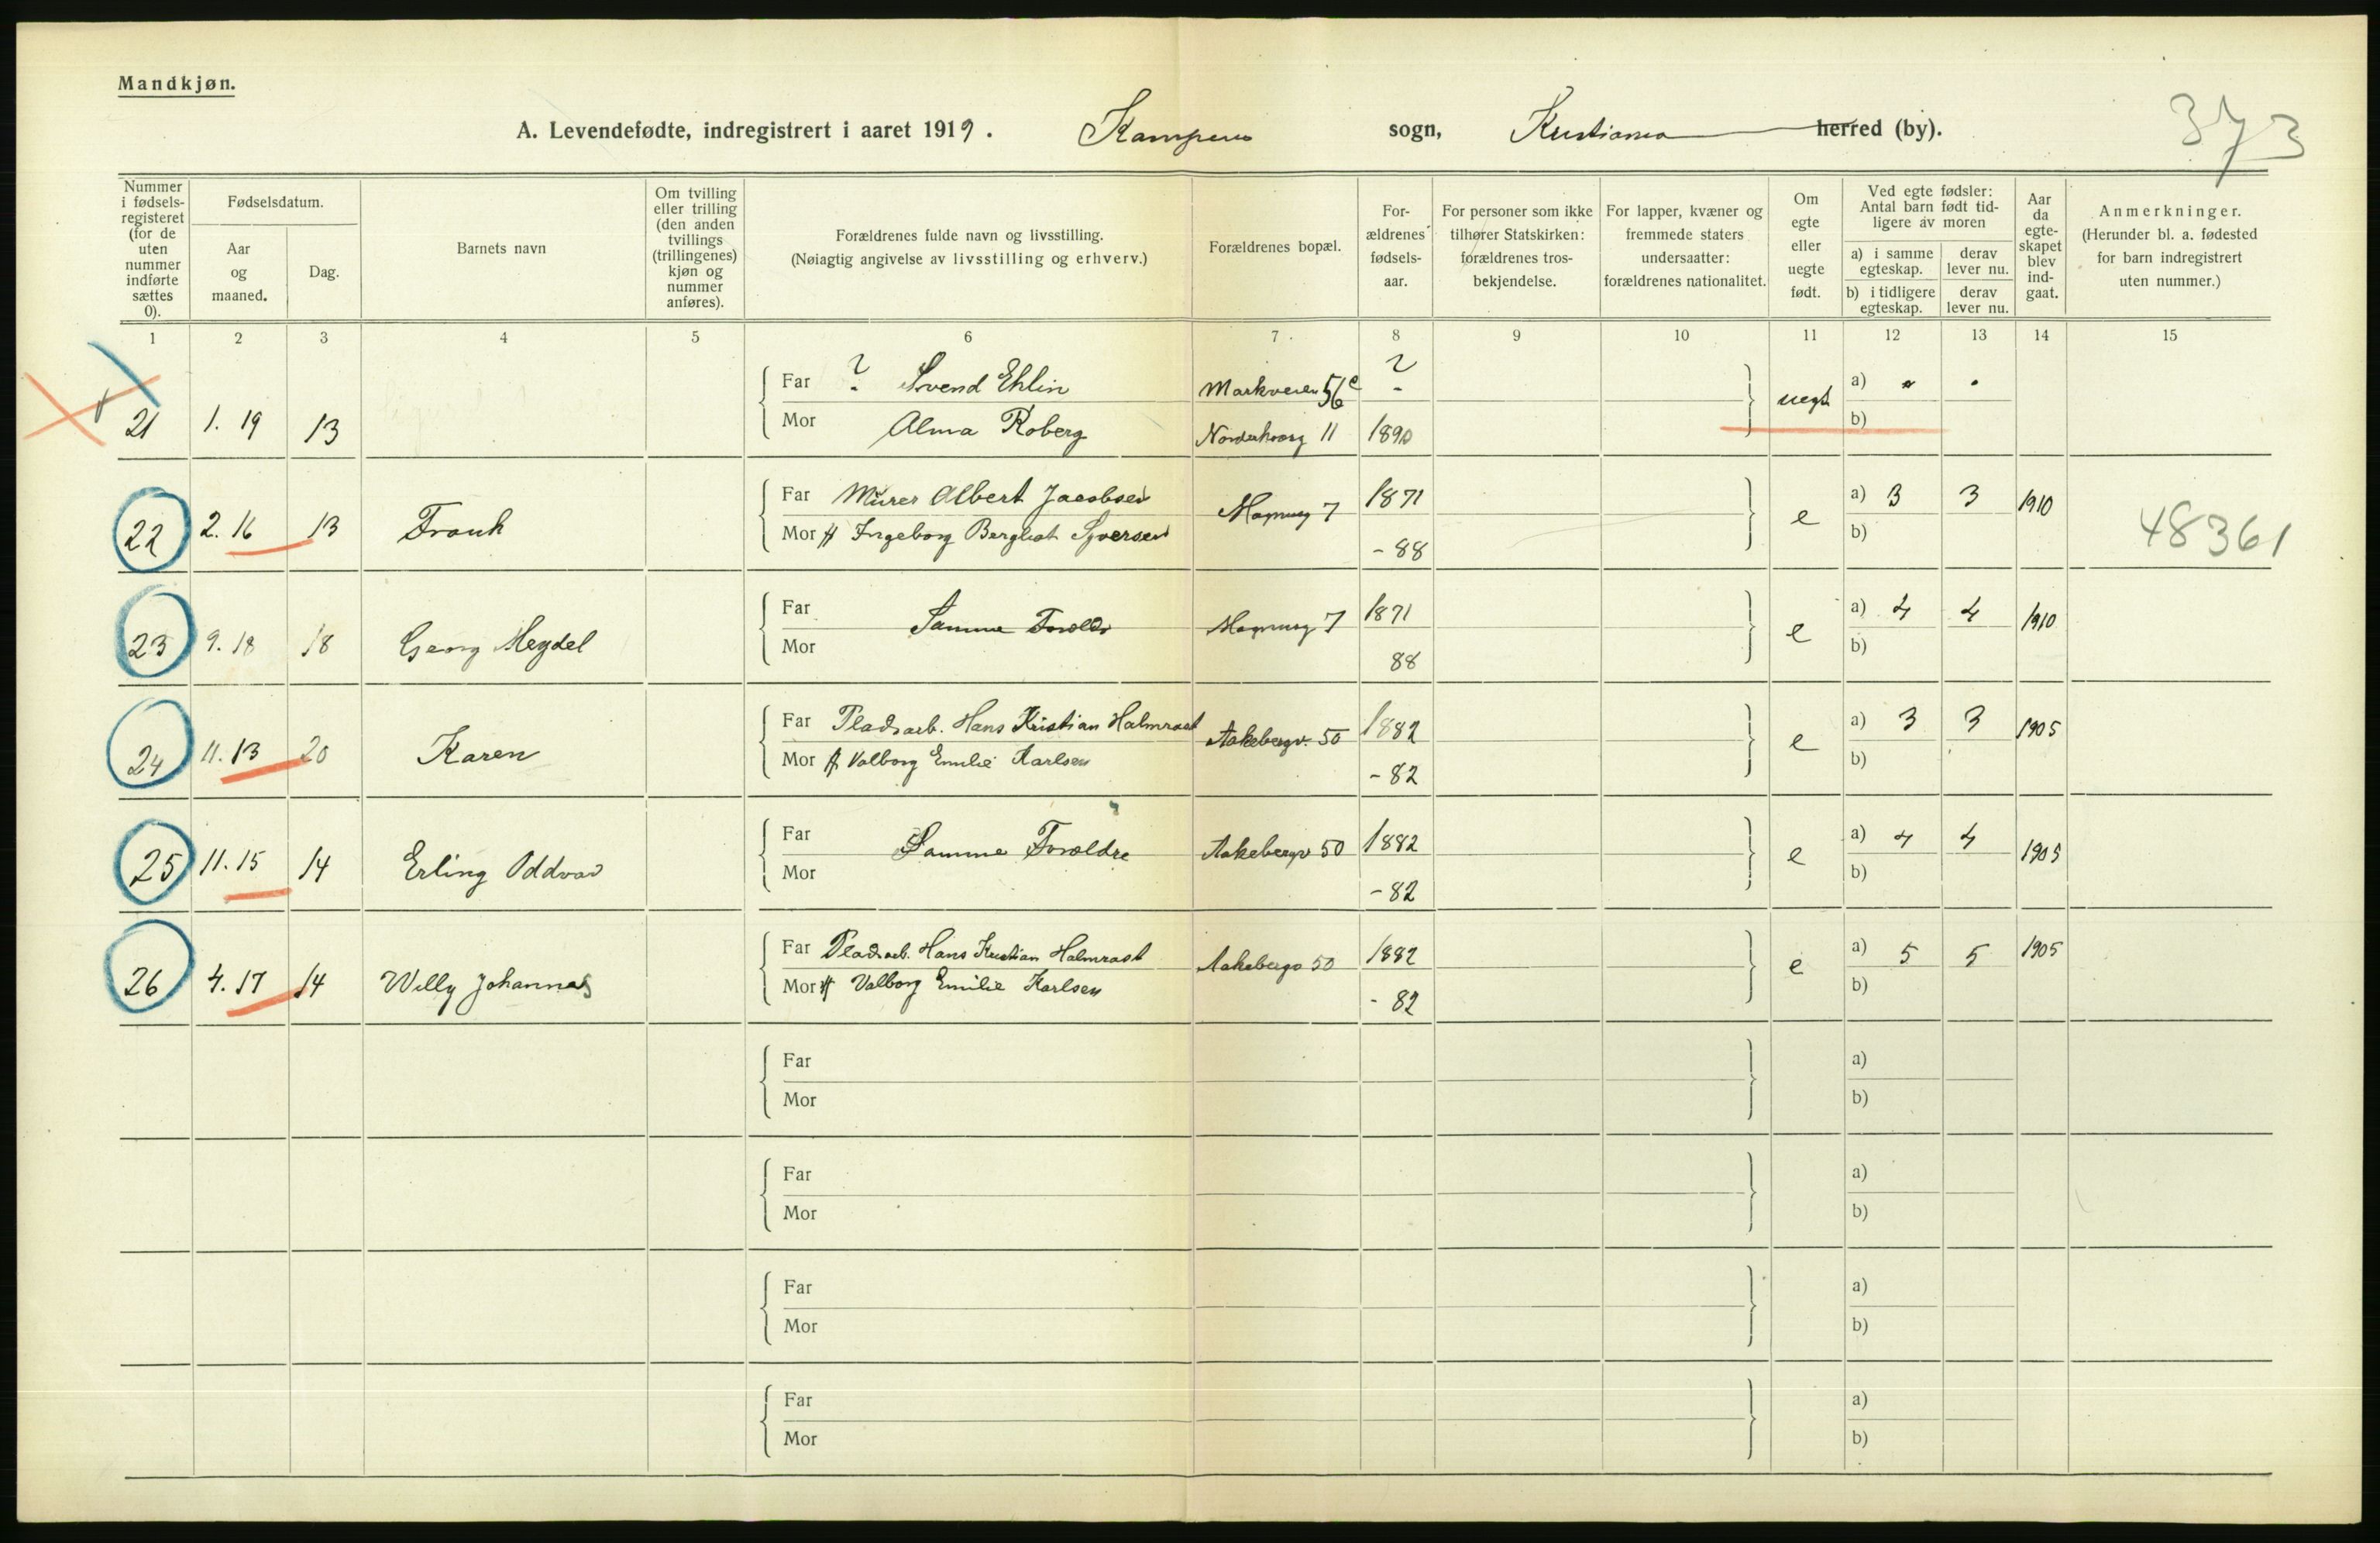 Mandkjøn.
A. Levendefødte, indregistrert i aaret 1919. Kampens sogn, Kristiania herred (by).
373
Nummer i fødselsregisteret (for de uten nummer indførte sættes 0).
Fødselsdatum.
Aar og maaned.
Dag.
Barnets navn
Om tvilling eller trilling (den anden tvillings (trillingenes) kjøn og nummer anføres).
Forældrenes fulde navn og livsstilling.
(Nøiagtig angivelse av livsstilling og erhverv.)
Forældrenes bopæl.
Forældrenes fødselsaar.
For personer som ikke tilhører Statskirken: forældrenes trosbekjendelse.
For lapper, kvæner og fremmede staters undersaatter: forældrenes nationalitet.
Om egte eller uegte født.
Ved egte fødsler: Antal barn født tidligere av moren
a) i samme egteskap. derav lever nu.
b) i tidligere egteskap. derav lever nu.
Aar da egteskapet blev indgaat.
Anmerkninger.
(Herunder bl. a. fødested for barn indregistrert uten nummer.)
1 2 3 4 5 6 7 8 9 10 11 12 13 14 15
Far ? Svend Ehlin Markveien 56c ? a)
21 1. 19 13 Mor Alma Roberg 11 1890 uegt b)
Far Murer Albert Jacobsen 7 1871 a) 3 3 1910
22 2. 16 13 Frank Mor Ingeborg Bergliot Syversen - 88 e b) 48361
Far Samme Foreldr 7 1871 a) 4 4 1910
23 9. 18 18 Georg Megdel Mor 88 e b)
Far Pladsarb. Hans Kristian Halmrast Aakebergv. 50 1882 a) 3 3 1905
24 11. 13 20 Karen Mor Valborg Emilie Karlsen - 82 e b)
Far Samme Foreldre Aakebergv 50 1882 a) 4 4 1905
25 11. 15 14 Erling Oddvar Mor - 82 e b)
Far Pladsarb. Hans Kristian Halmrast Aakebergv 50 1882 a) 5 5 1905
26 4. 17 14 Willy Johannes Mor Valborg Emilie Karlsen - 82 e b)
Far a)
Mor b)
Far a)
Mor b)
Far a)
Mor b)
Far a)
Mor b)